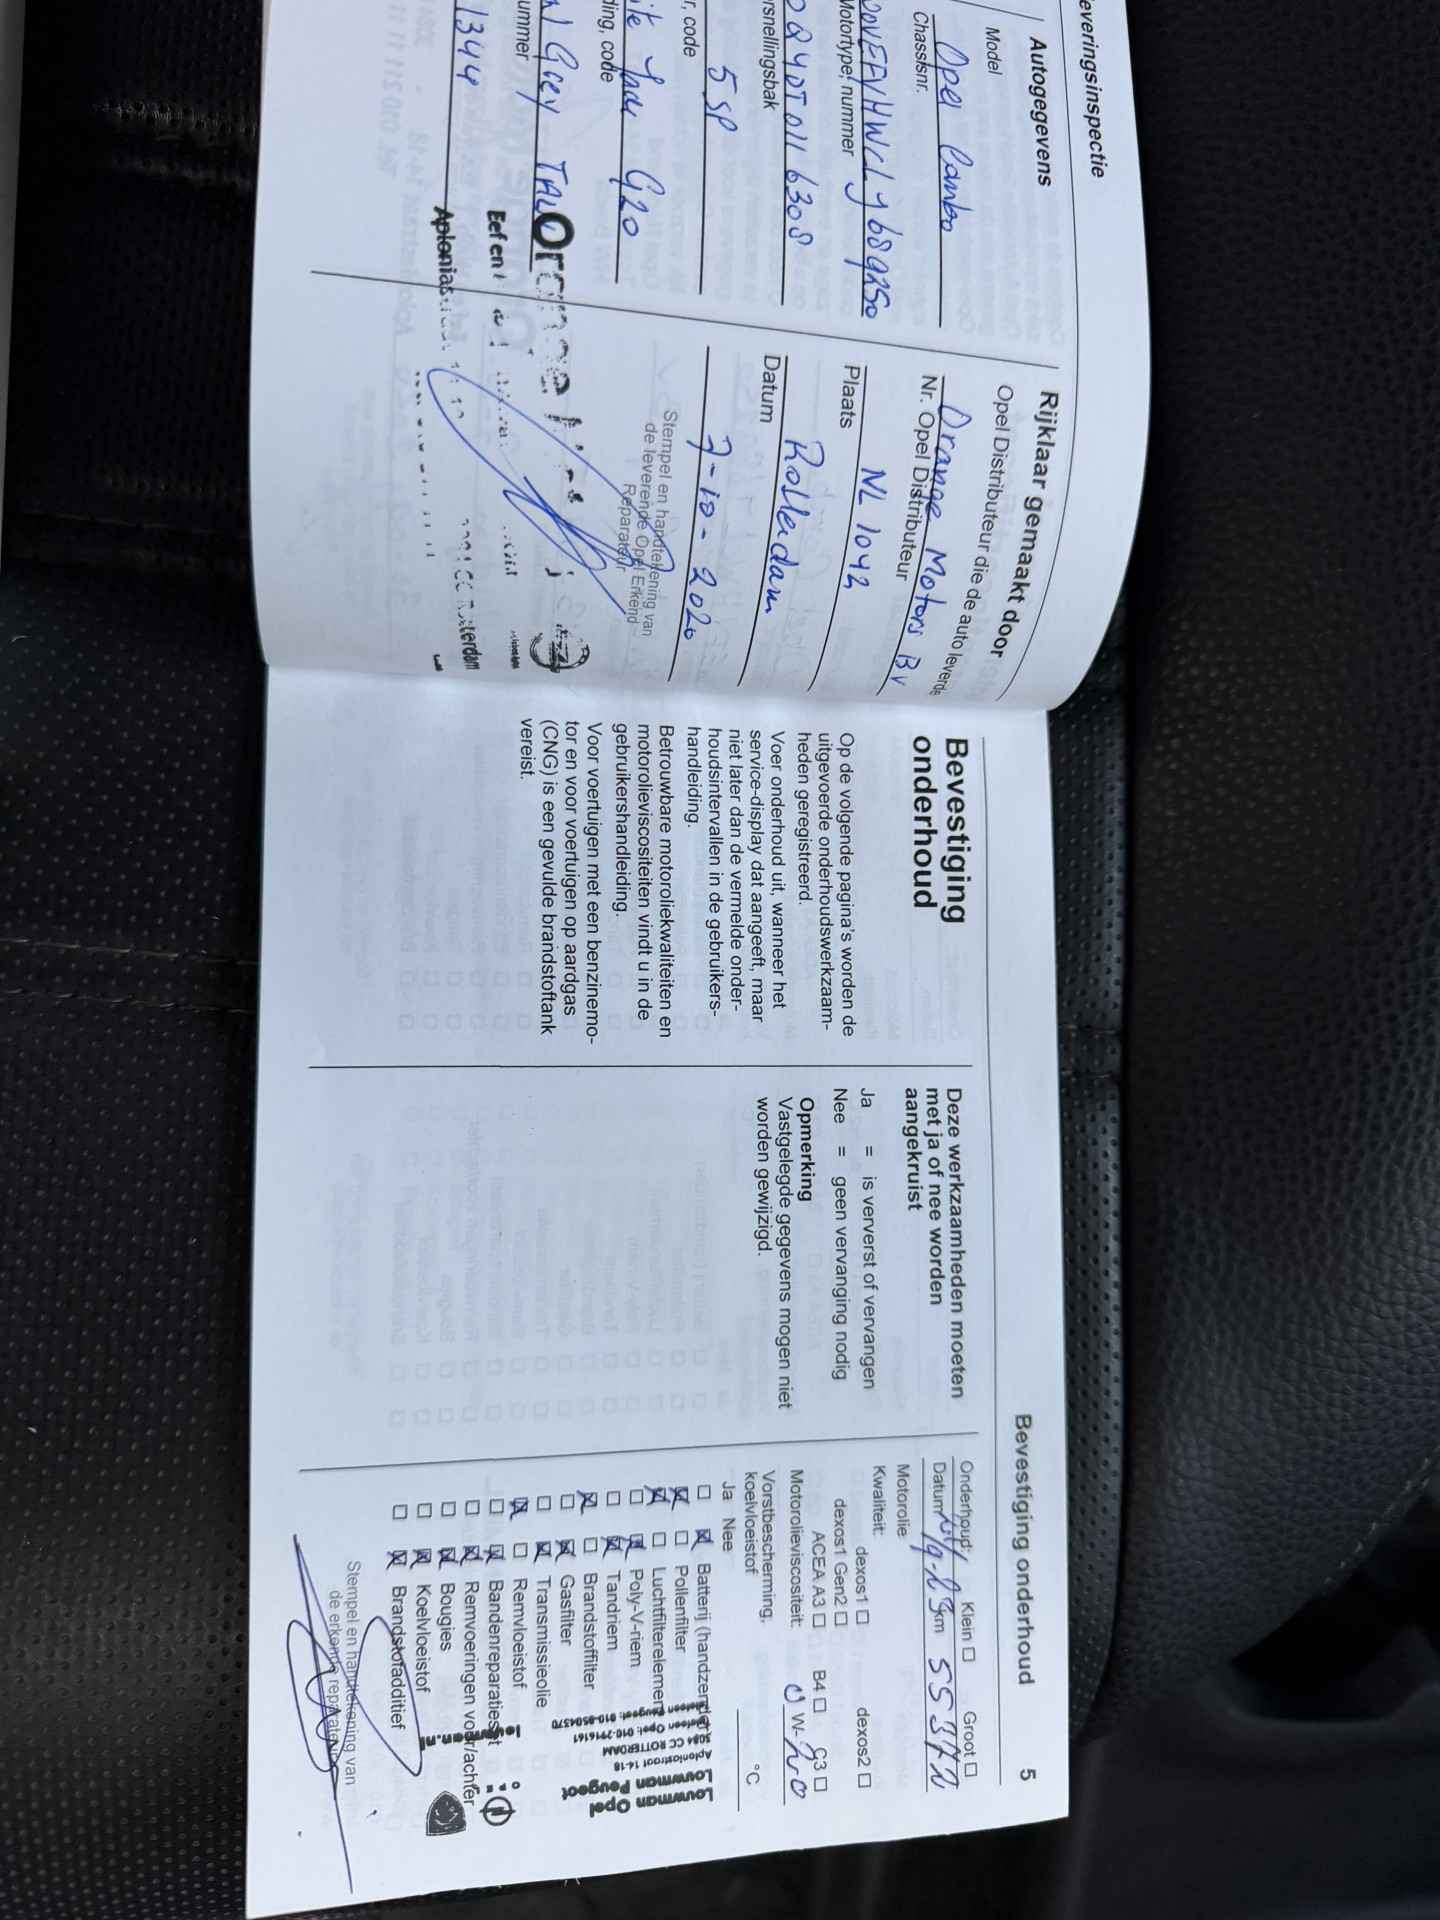 everingsinspectie
Autogegevens
Model
Opel Combo
Chassisnr.
Motortype, nummer
rsnellingsbak
5 SP
r, code
G20
ding, code
Grey
ummer
1344
Rijklaar gemaakt door
Opel Distributeur die de auto leverde
Orange Motors BV
Nr. Opel Distributeur
NL 1042
Plaats
Rotterdam
Datum
7-10-2020
Stempel en handtekening van
de leverende Opel Erkend
Reparateur
Bevestiging
onderhoud
Op de volgende pagina's worden de
uitgevoerde onderhoudswerkzaam-
heden geregistreerd.
Voer onderhoud uit, wanneer het
service-display dat aangeeft, maar
niet later dan de vermelde onder-
houdsintervallen in de gebruikers-
handleiding.
Betrouwbare motoroliekwaliteiten en
motorolieviscositeiten vindt u in de
gebruikershandleiding.
Voor voertuigen met een benzinemo-
tor en voor voertuigen op aardgas
(CNG) is een gevulde brandstoftank
vereist.
Deze werkzaamheden moeten
met ja of nee worden
aangekruist
Ja = is ververst of vervangen
Nee = geen vervanging nodig
Opmerking
Vastgelegde gegevens mogen niet
worden gewijzigd.
Bevestiging onderhoud 5
Onderhoud: Klein ☐ Groot ☐
Datum km
Motorolie
Kwaliteit: dexos1 ☐ dexos2 ☐
dexos1 Gen2 ☐
ACEA A3 ☐ B4 ☐ C3 ☐
Motorolieviscositeit: 0W-20
Vorstbescherming,
koelvloeistof °C
Ja Nee
☐ ☒ Batterij (handzender)
☒ ☐ Pollenfilter
☒ ☐ Luchtfilterelement
☐ ☒ Poly-V-riem
☐ ☒ Tandriem
☒ ☐ Brandstoffilter
☐ ☒ Gasfilter
☐ ☒ Transmissieolie
☒ ☐ Remvloeistof
☐ ☒ Bandenreparatieset
☐ ☒ Remvoeringen voor/achter
☐ ☒ Bougies
☐ ☒ Koelvloeistof
☐ ☒ Brandstofadditief
Louwman Opel
Louwman Peugeot
Aploniastraat 14-18
3084 CC ROTTERDAM
louwman.nl
Stempel en handtekening van
de erkende reparateur